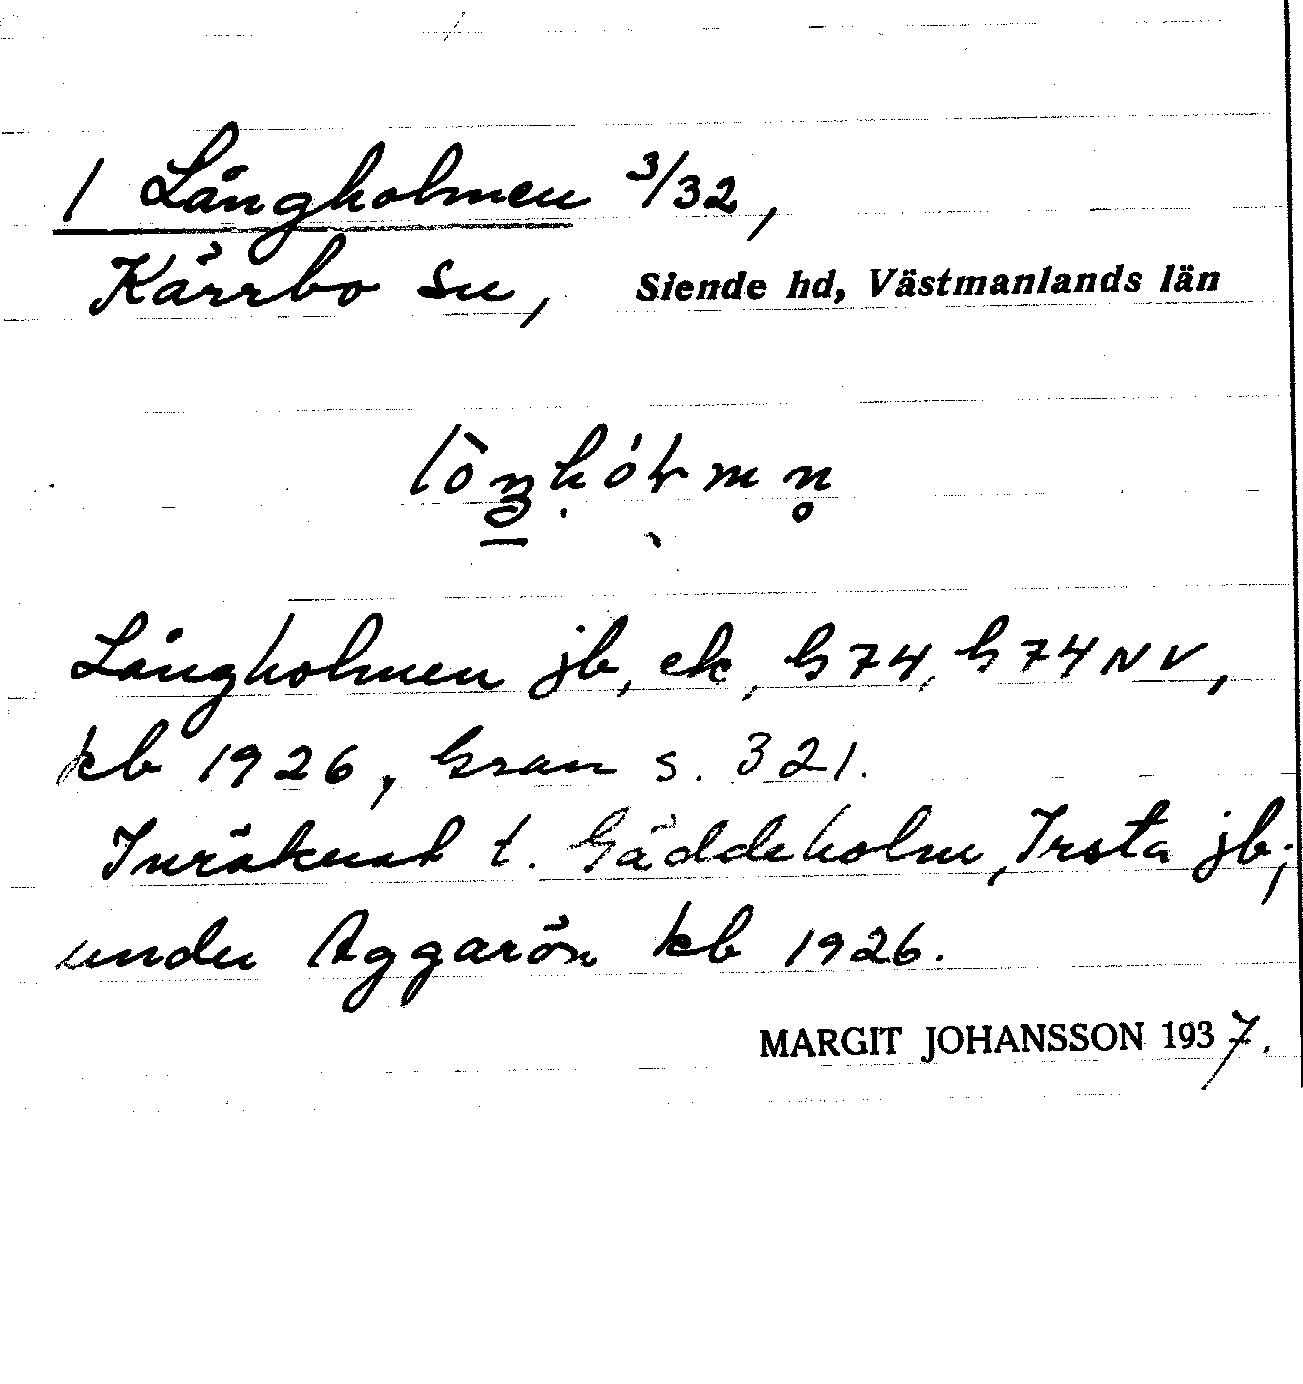 1 Långholmen 3/32,
Kärrbo sn, Siende hd, Västmanlands län
Långholmen jb, ek, G 74, G 74 NV,
kb 1926, Gran s. 321.
Inräknat t. Gäddeholm, Irsta jb;
under Aggarön kb 1926.
MARGIT JOHANSSON 1937.